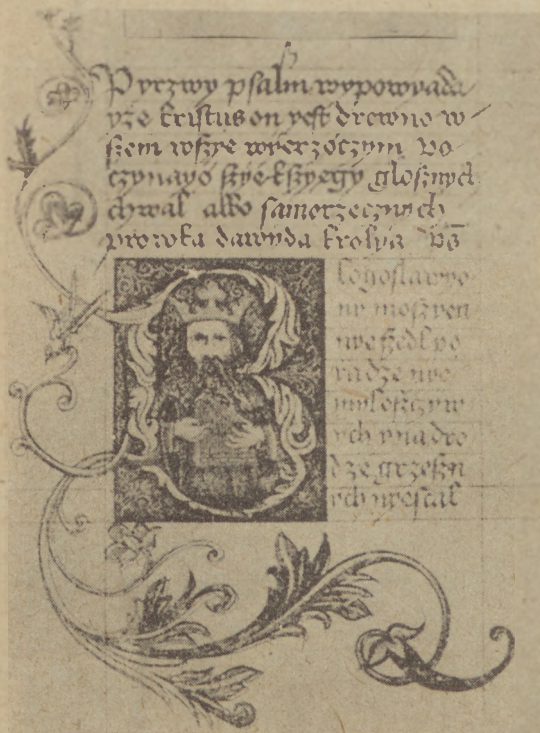 Pyrzwy psalm wypowyada
yze kristus on yest drewno w
szem wszye wyerzóczym Po
czynayó szye kszyegy glosznych
chwal albo samorzecznych
proroka dawyda krolya ps̄
logoslawyo
ny mosz yen
nye szedl po
radze nye
myloszczyw
ych y na dro
dze grzeszn
ych nye stal